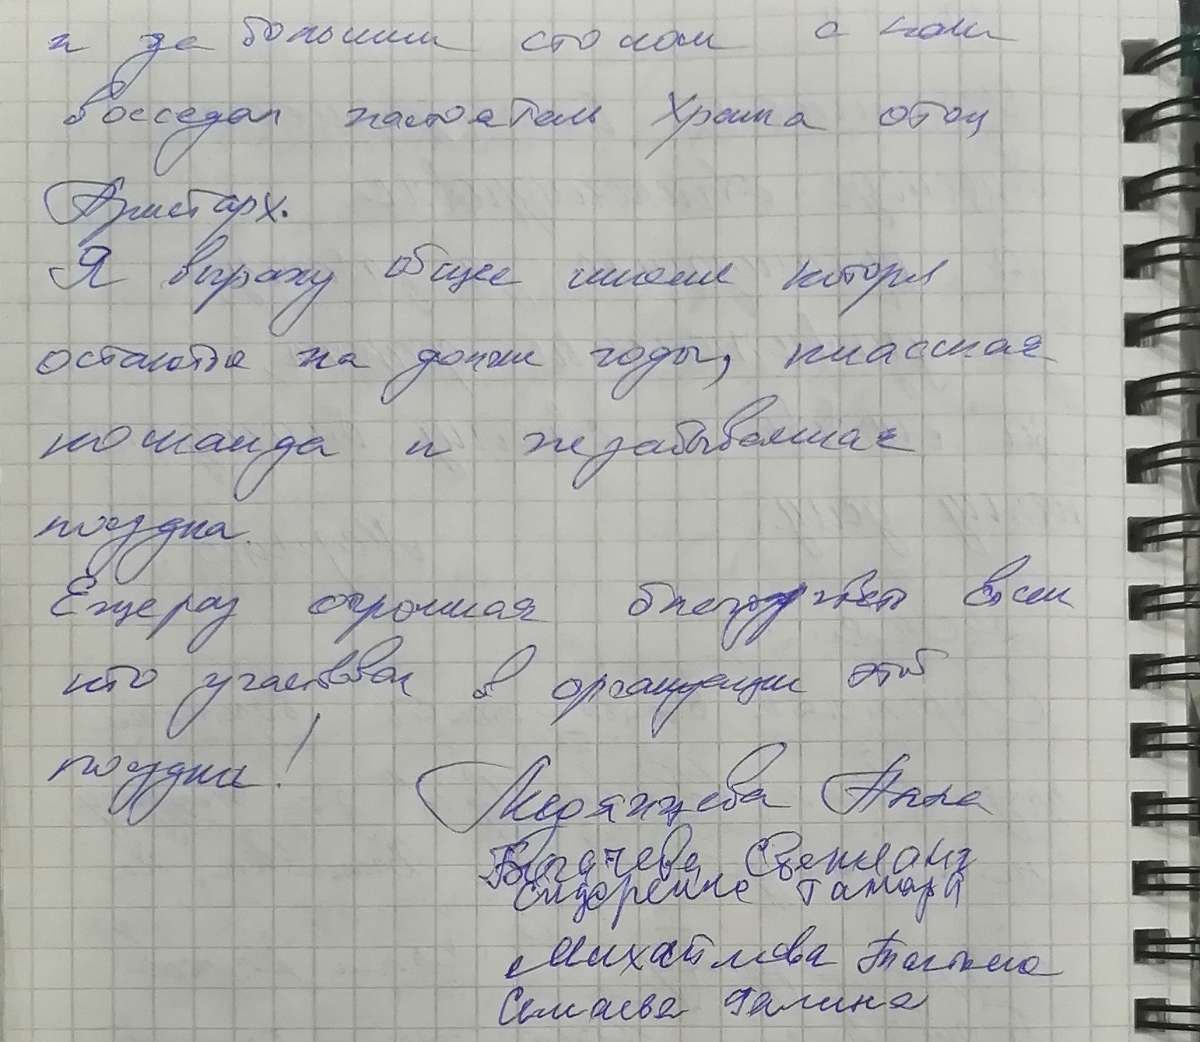 и за большим столом с нами
восседал настоятель Храма отец
Аристарх.
Я выражу общее мнение которое
остаются на долгие годы, классная
команда и незабываемая
поездка.
Ещё раз огромная благодарность всем
кто участвовал в организации этой
поездки!
Медянцева Анна
Светлана
Сидоренко Тамара
Михайлова Татьяна
Семаева Галина